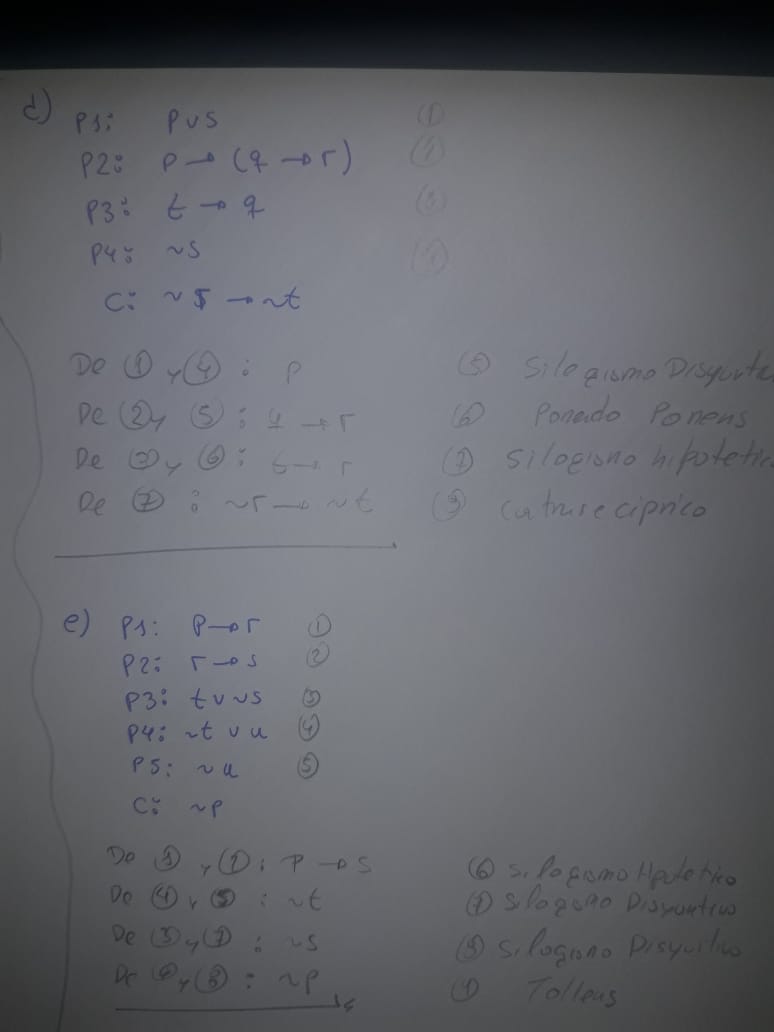 d) P1: p v s ①
P2: p → (q → r) ②
P3: t → q ③
P4: ~s ④
C: ~r → ~t
De ① y ④ : p ⑤ Silogismo Disyunt
De ② y ⑤ : q → r ⑥ Ponendo Ponens
De ③ y ⑥ : t → r ⑦ Silogismo hipotetic
De ⑦ : ~r → ~t ⑧
e) P1: p → r ①
P2: r → s ②
P3: t v ~s ③
P4: ~t v u ④
P5: ~u ⑤
C: ~p
De ① y ② : p → s ⑥ Silogismo Hipotetico
De ④ y ⑤ : ~t ⑦ Silogismo Disyuntivo
De ③ y ⑦ : ~s ⑧ Silogismo
De ⑥ y ⑧ : ~p ⑨ Tollens